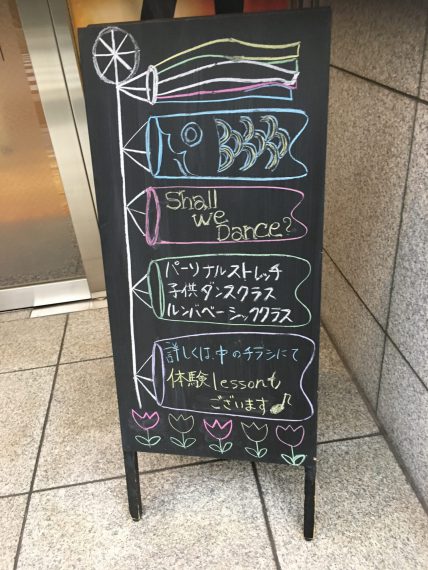 Shall
we
Dance?
パーソナルストレッチ
子供ダンスクラス
ルンバベーシッククラス
詳しくは、中のチラシにて
体験lessonも
ございます♪